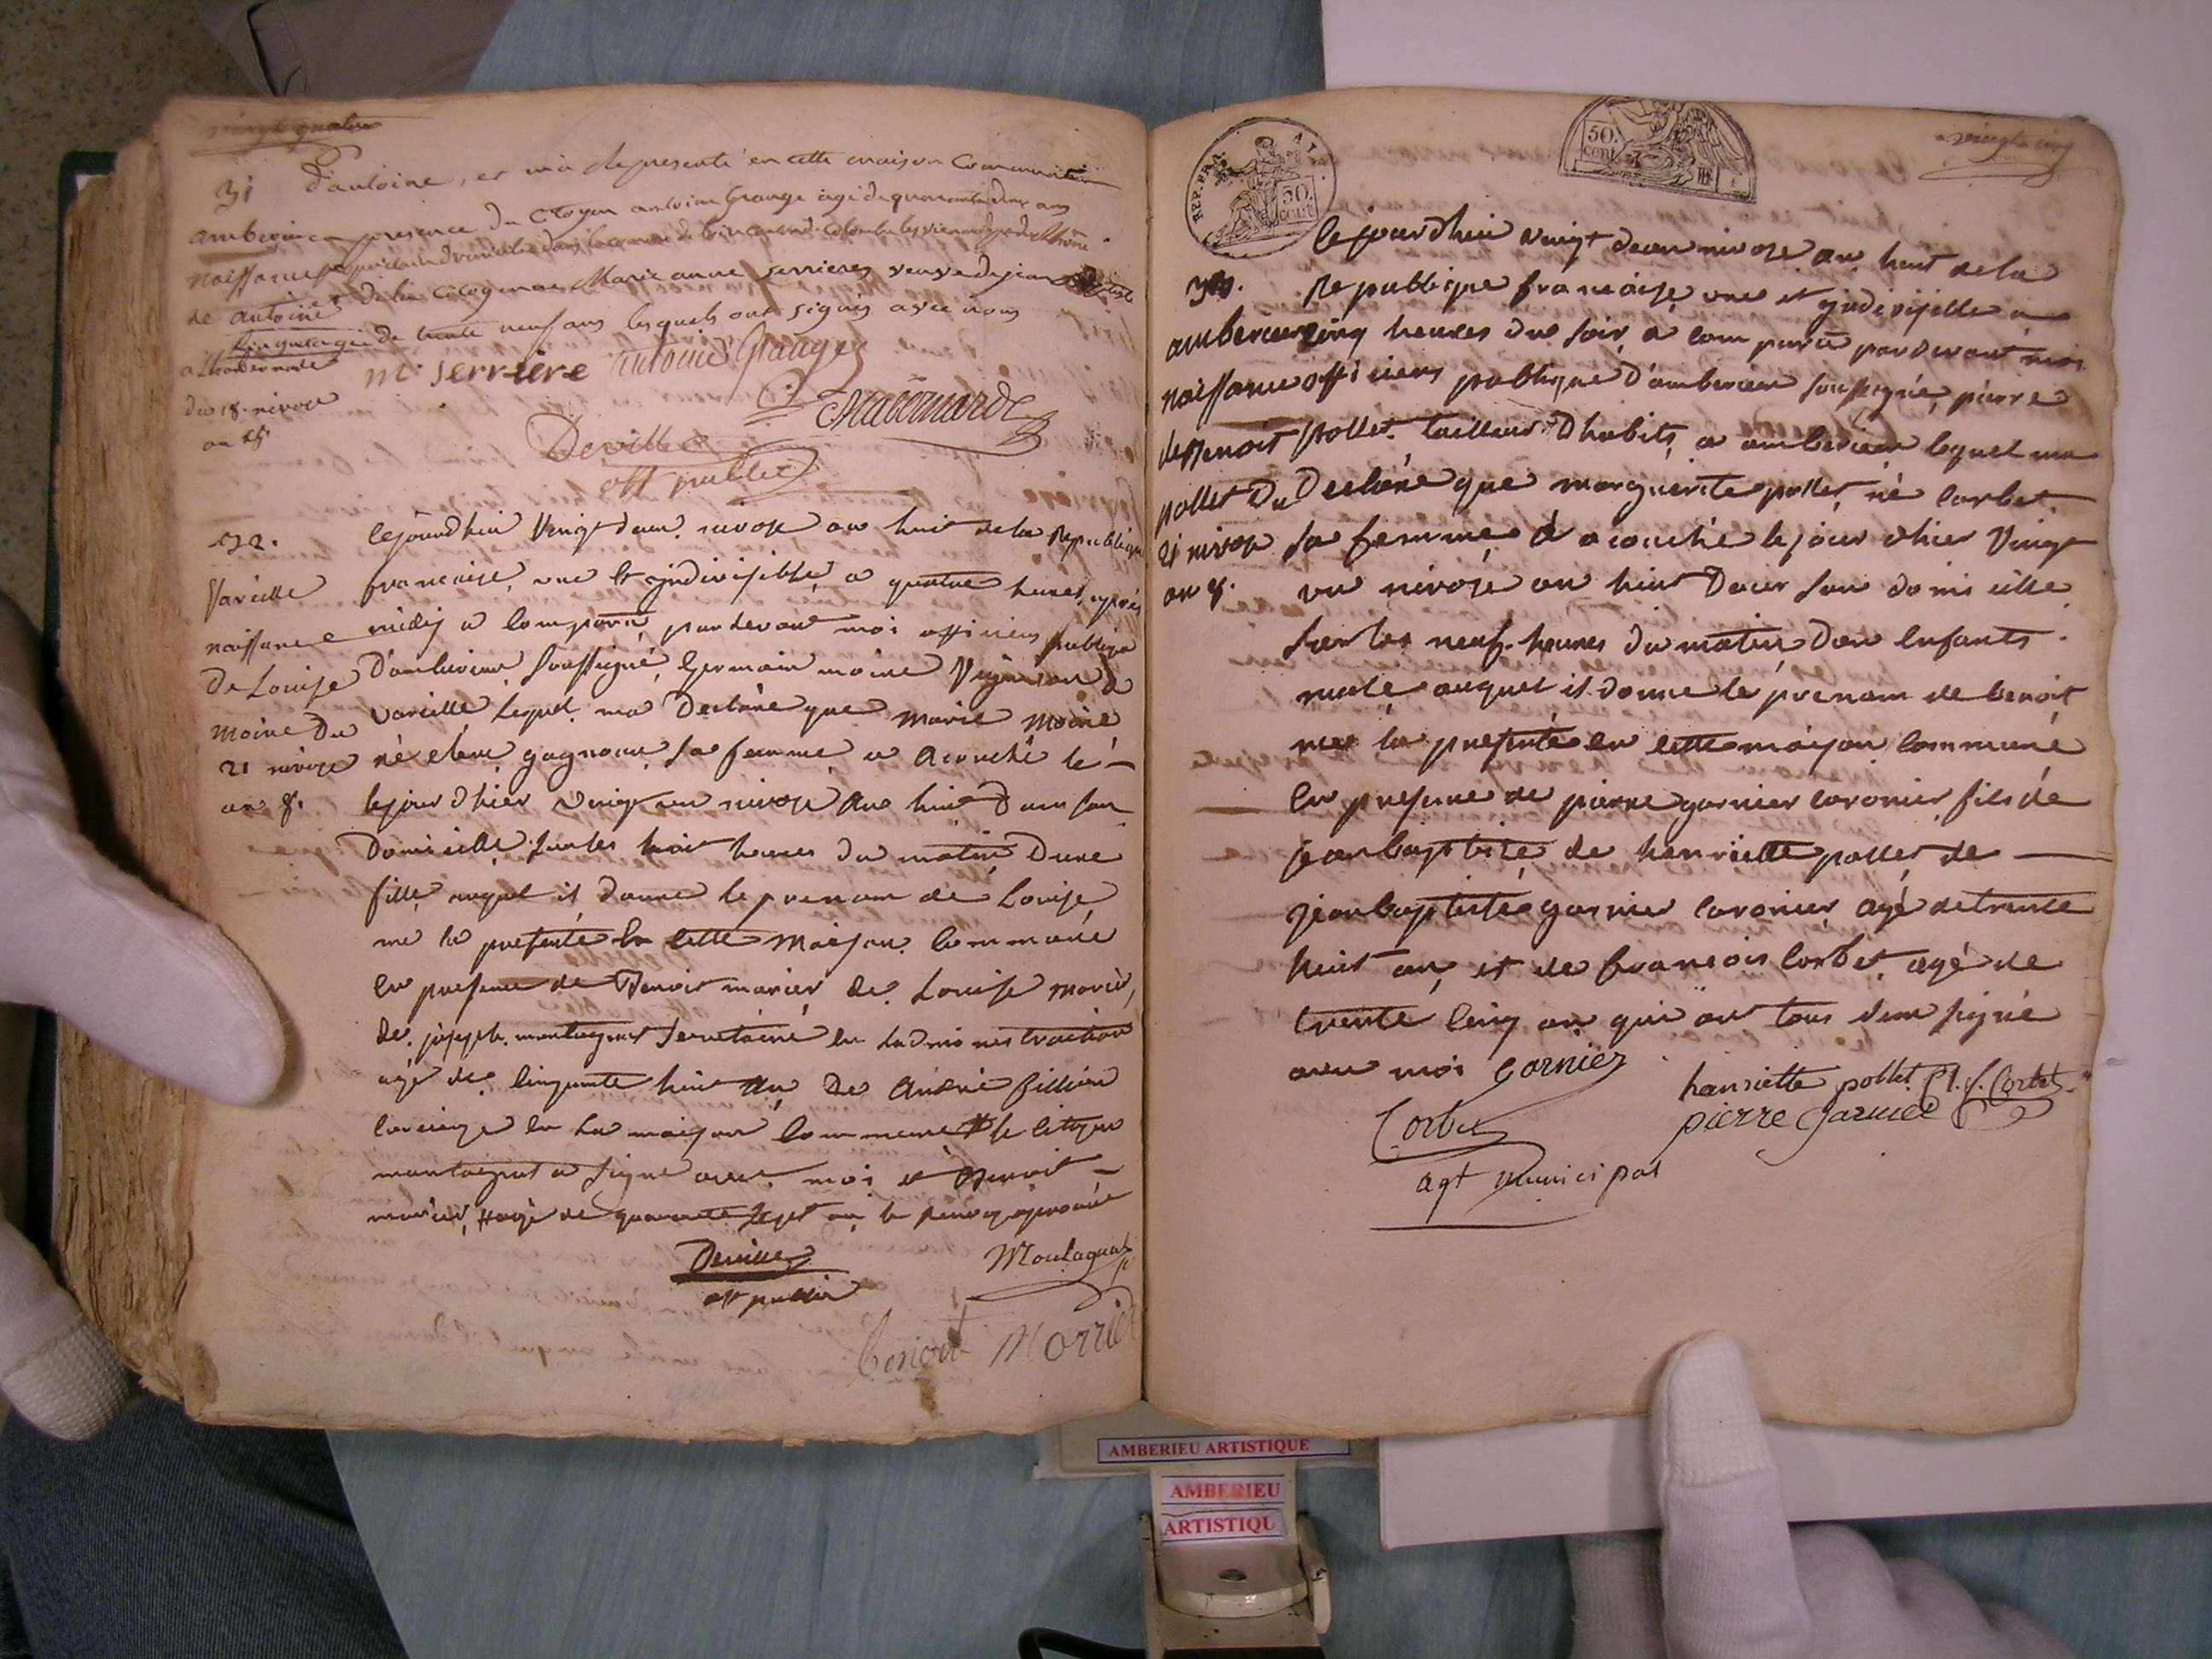 vingt quatre
31 d'antoine, et m'a été presenté en cette maison Commune
amberieu en presence du Citoyen antoine Grange agé de quarante deux ans
naissance
de antoine de la citoyenne Marie anne serrieres veuve de jean
agée de trente neuf ans lesquels ont signés avec nous
du 18. nivose
an 8
m. serriere antoine Grange
Deville
off public
32. lejourdhui Vingt deux nivose an huit de la Republique
Vareille francaise, une et jndivisible, a quatre heures, après
naissance midy a comparu pardevant moi officiers publique
De Louise D'amberieux soussigné, Germain moine Vigneron a
moine Du vareille lequel ma Declare que marie moine
21 nivose né gagneux sa femme a acouché le
an 8. lejour dhier vingt un nivose an huit Dans son
Domicille sur les huit heures du matin Dune
fille auquel il donne le prenom de Louise,
me la presenté en cette maison commune
en presence de Benoit marier de Louise marier,
de joseph montagnat secretaire en Ladministration
agé de cinquante huit an De André fillion
concierge en La maison commune # le citoyen
montagnat a signe avec moi et Benoit
marier, # agé de quarante sept an le renvoy aprouvé
Deville
off public
Montagnat
benoit Morrier
REP. FRA.
50.
cent
50.
cent.
RF
vingt cinq
lejourdhui vingt deux nivose an huit de la
Republique francaise une et jndivisible a
amberieux cinq heures du soir, a comparu pardevant moi
naissance officiers publique D'amberieux soussigné, pierre
de Benoit pollet tailleur Dhabits, a amberieux lequel ma
pollet Du Declare que marguerite pollet né Corbet
21 nivose sa femme a acouché le jour dhier Vingt
an 8. un nivose an huit Dans son domicille
sur les neuf heures du matin Dun Enfants
male auquel il donne le prenom de benoit
mes la presenté en cette maison commune
en presence de pierre garnier fils de
jean baptiste de henriette pollet de
jean baptiste garnier agé de trente
huit an, et de francois Corbet agé de
trente cinq an qui ont tous deux signé
avec moi Garnier
henriette pollet f. Corbet
Corbet pierre Garnier
agt municipal
AMBERIEU ARTISTIQUE
AMBERIEU
ARTISTIQU